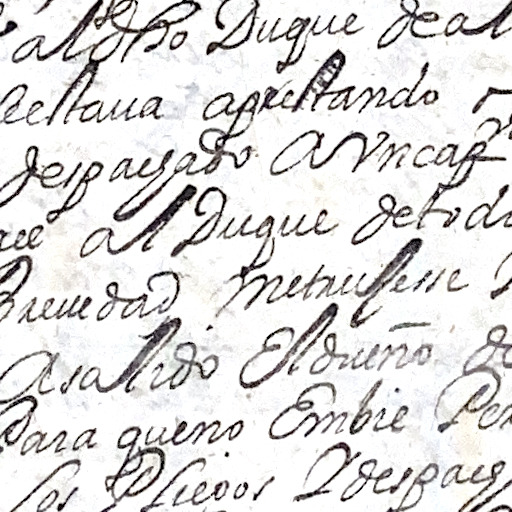 al dho Duque de al
estaua aprestando
despachado A Vn cap
al Duque de todo
Breuedad metruxesse
A salido El dueño de
Para que no Embie Per
los Pliegos Y despach